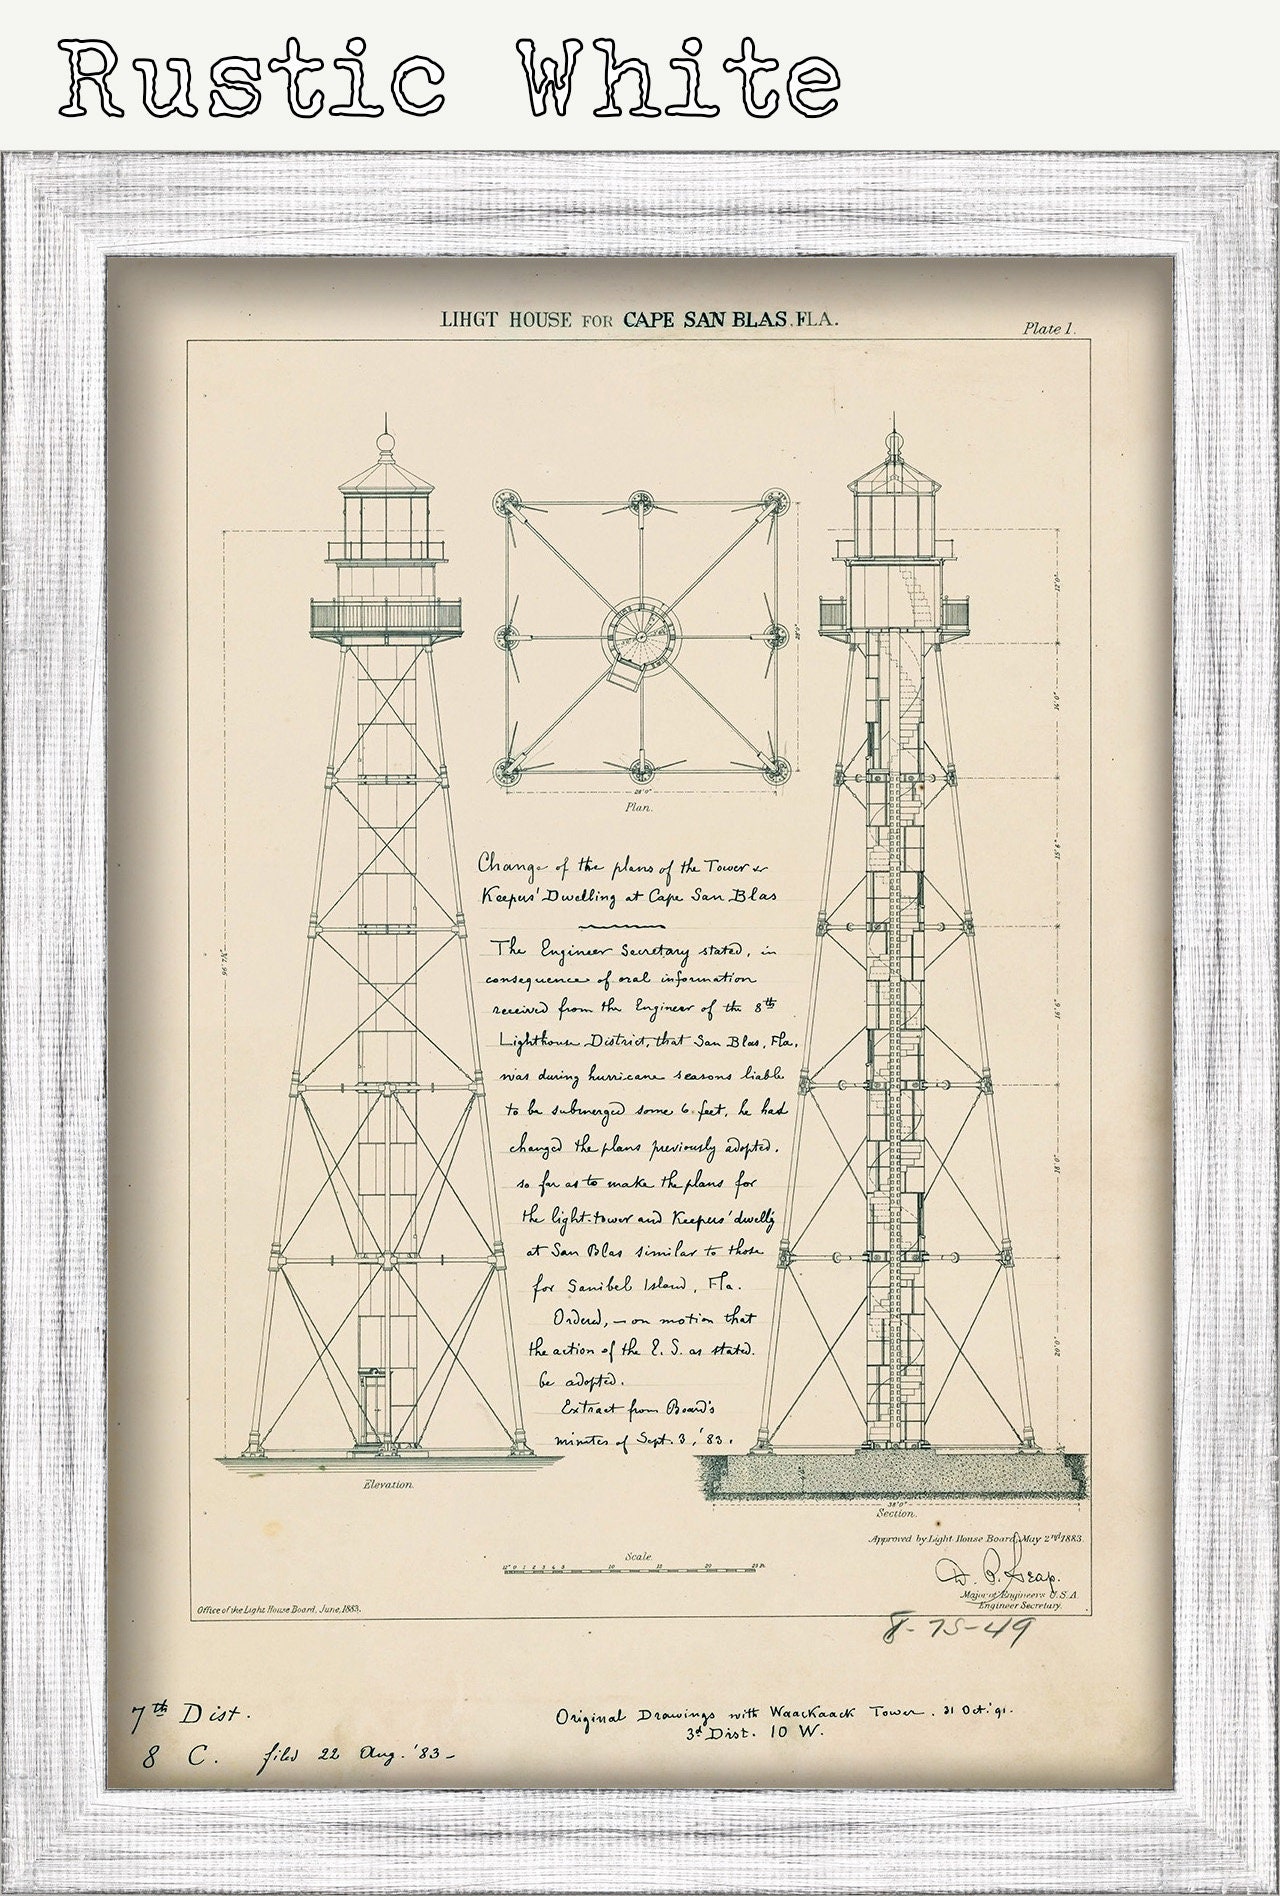 Rustic White
LIHGT HOUSE FOR CAPE SAN BLAS, FLA.
Plate 1.
12'.0"
28'.0"
28'0"
Plan.
Change of the plans of the Tower &
Keepers' Dwelling at Cape San Blas
The Engineer Secretary stated, in
consequence of oral information
received from the Engineer of the 8th
Lighthouse District, that San Blas, Fla,
was during hurricane seasons liable
to be submerged some 6 feet, he had
changed the plans previously adopted,
so far as to make the plans for
the light-tower and Keepers' dwell'g
at San Blas similar to those
for Sanibel Island, Fla.
Ordered, — on motion that
the action of the E. S. as stated.
be adopted.
Extract from Board's
minutes of Sept. 3, '83.
18'.0"
20'.0"
Elevation.
38'0"
Section.
Approved by Light House Board, May 2nd 1883.
Scale.
12" 0 1 2 3 4 5 10 15 20 25 Ft.
Major of Engineers U.S.A.
Engineer Secretary.
Office of the Light House Board, June, 1883.
8-75-49
7th Dist.
Original Drawings with Waackaack Tower. 31 Oct. '91.
3d Dist. 10 W.
8 C. filed 22 Aug. '83-